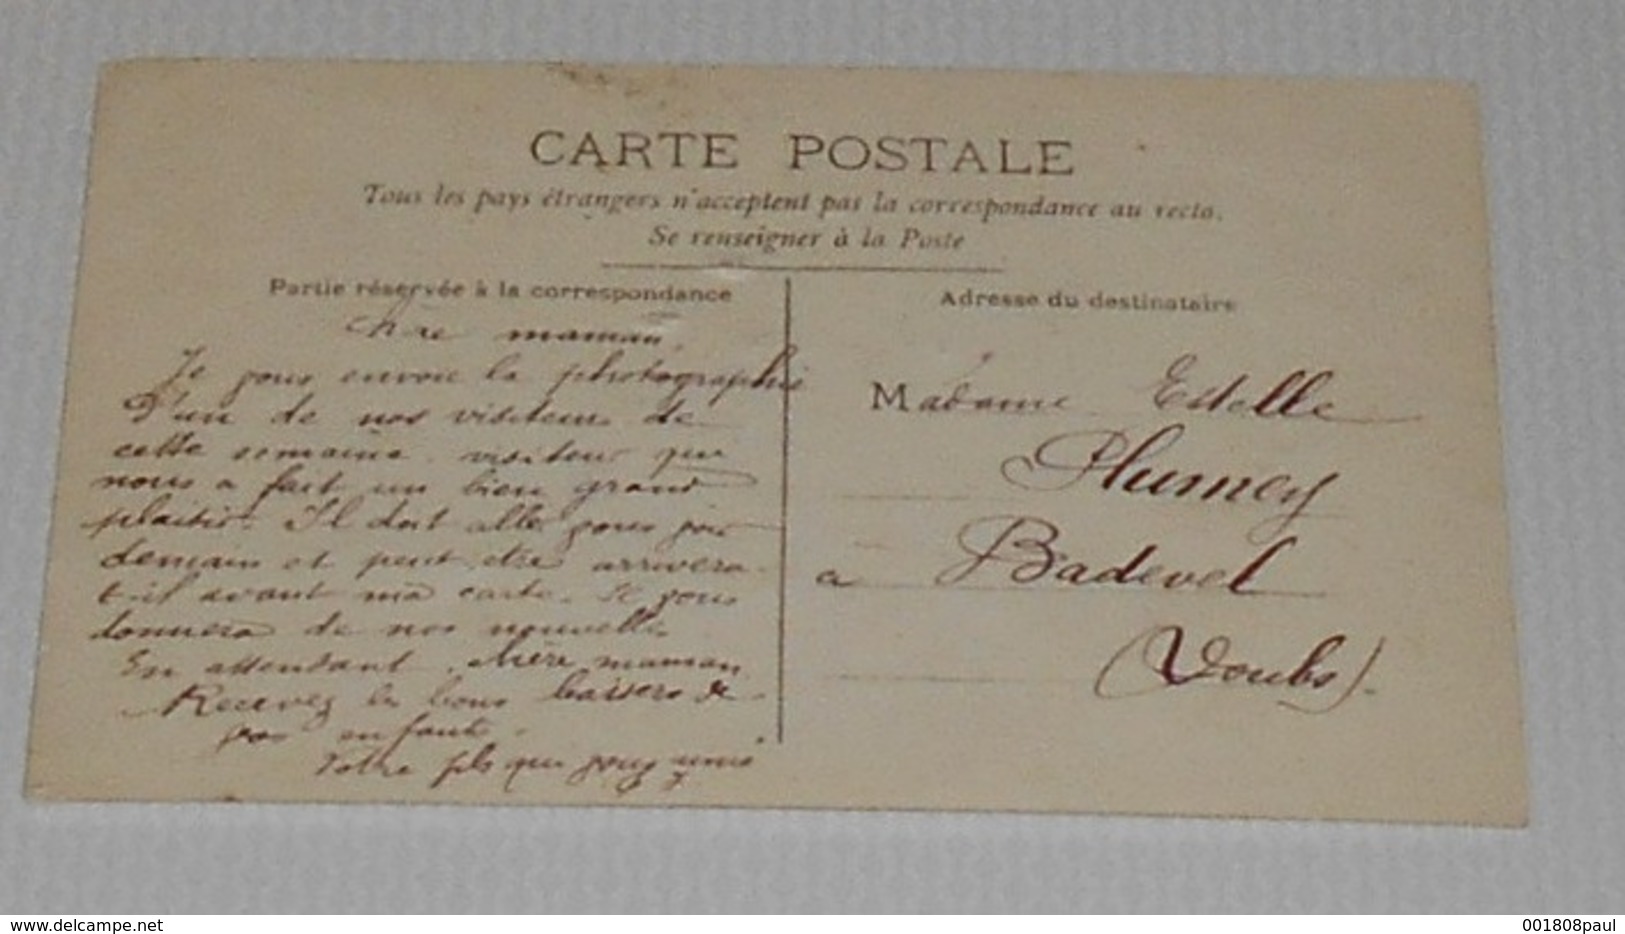 CARTE POSTALE
Tous les pays étrangers n'acceptent pas la correspondance au recto.
Se renseigner à la Poste
Partie réservée à la correspondance
Chère maman,
Je vous envoie la photographie
D'un de nos visiteurs de
cette semaine visiteur qui
nous a fait un bien grand
plaisir. Il doit aller vous voir
demain et peut être arrivera
t-il avant ma carte. Il vous
donnera de nos nouvelles
En attendant chère maman
Recevez les bons baisers de
vos enfants.
Votre fils qui vous
Adresse du destinataire
Madame Estelle
Plumey
a Badevel
(Doubs).
www.delcampe.net
001808paul